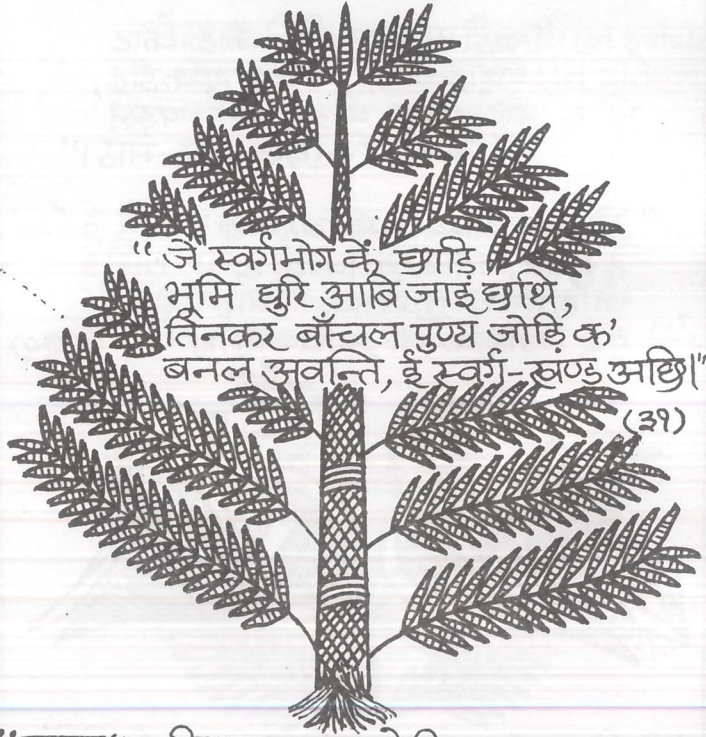 “जे स्वर्गभोग कें छाड़ि
भूमि घुरि आबि जाइ छथि,
तिनकर बाँचल पुण्य जोड़ि क’
बनल अवन्ति, ई स्वर्ग-खण्ड अछि।”
(३१)